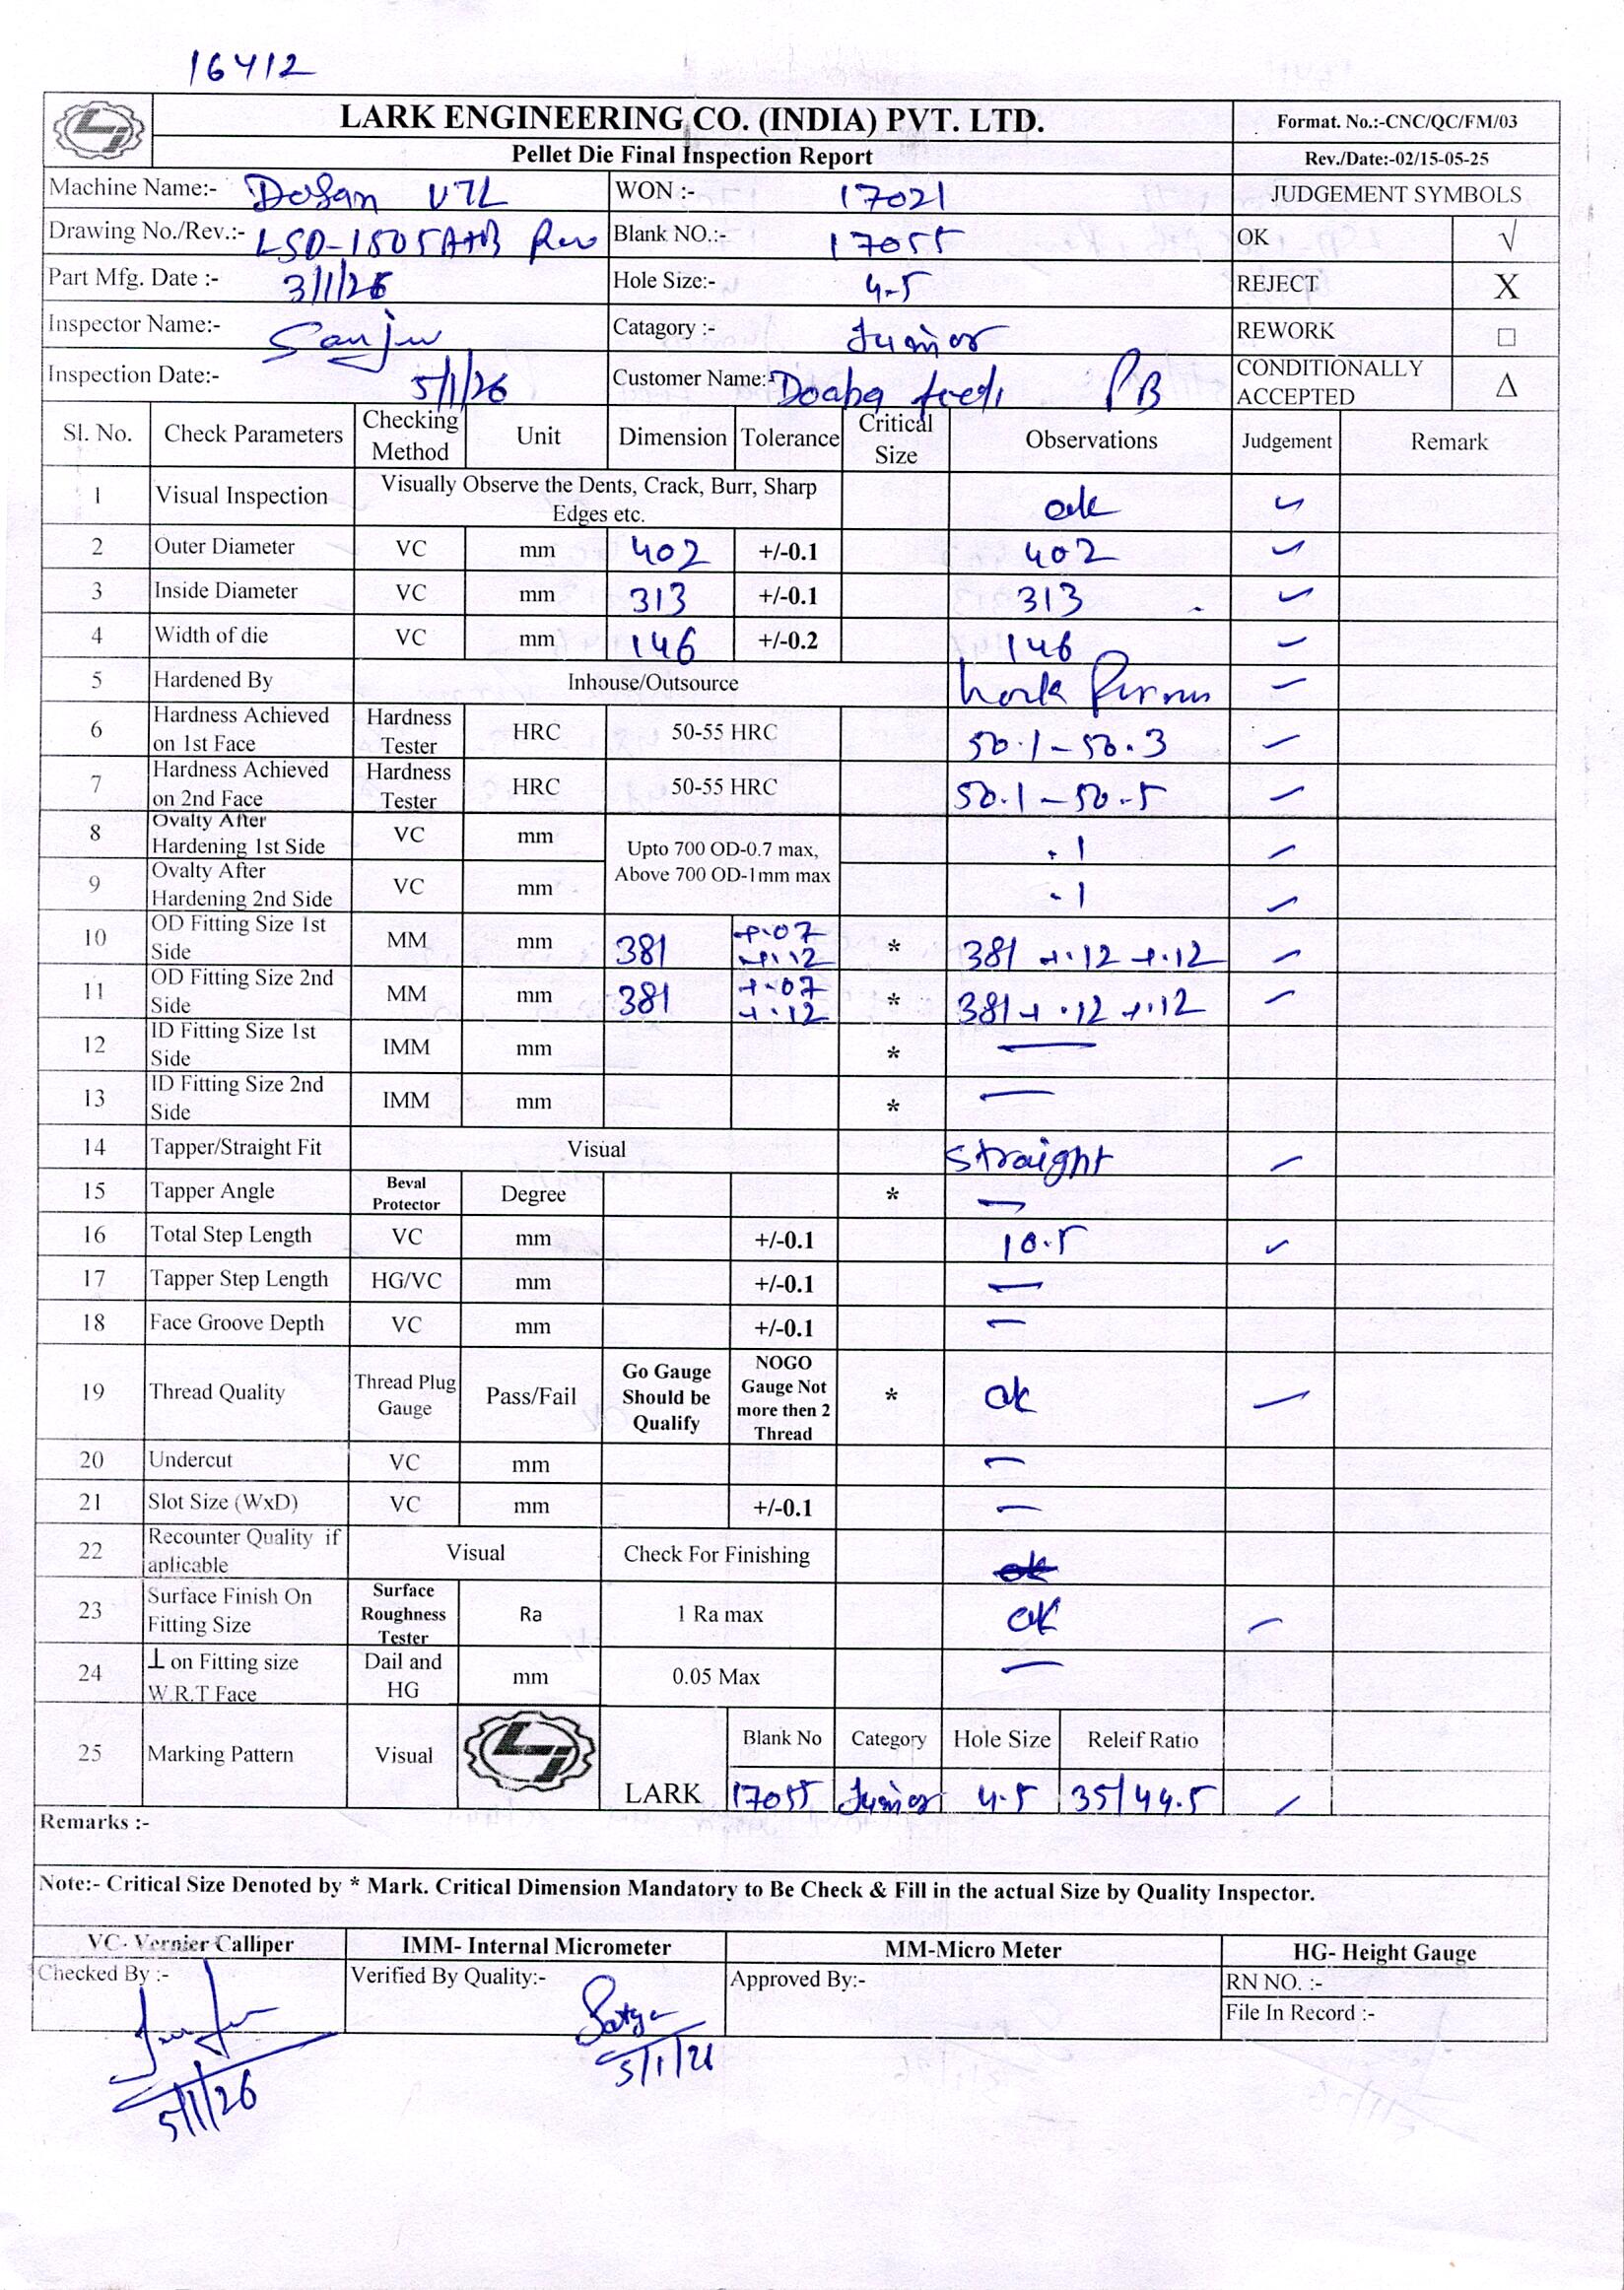 16412
LARK ENGINEERING CO. (INDIA) PVT. LTD.
Format. No.:-CNC/QC/FM/03
Pellet Die Final Inspection Report
Rev./Date:-02/15-05-25
Machine Name:- Dosan VTL WON :- 17021 JUDGEMENT SYMBOLS
Drawing No./Rev.:- LSD-1505A+B Rev Blank NO.:- 17055 OK √
Part Mfg. Date :- 3/1/26 Hole Size:- 4.5 REJECT X
Inspector Name:- Sanju Catagory :- Junior REWORK □
Inspection Date:- 5/1/26 Customer Name:- Doaba feeds PB CONDITIONALLY ACCEPTED Δ
Sl. No. Check Parameters Checking Method Unit Dimension Tolerance Critical Size Observations Judgement Remark
1 Visual Inspection Visually Observe the Dents, Crack, Burr, Sharp Edges etc. ok ✓
2 Outer Diameter VC mm 402 +/-0.1 402 ✓
3 Inside Diameter VC mm 313 +/-0.1 313 ✓
4 Width of die VC mm 146 +/-0.2 146 ✓
5 Hardened By Inhouse/Outsource ✓
6 Hardness Achieved on 1st Face Hardness Tester HRC 50-55 HRC 50.1-50.3 ✓
7 Hardness Achieved on 2nd Face Hardness Tester HRC 50-55 HRC 50.1-50.5 ✓
8 Ovalty After Hardening 1st Side VC mm Upto 700 OD-0.7 max, Above 700 OD-1mm max .1 ✓
9 Ovalty After Hardening 2nd Side VC mm .1 ✓
10 OD Fitting Size 1st Side MM mm 381 +.07 +.12 * 381 +.12 +.12 ✓
11 OD Fitting Size 2nd Side MM mm 381 +.07 +.12 * 381 +.12 +.12 ✓
12 ID Fitting Size 1st Side IMM mm * —
13 ID Fitting Size 2nd Side IMM mm * —
14 Tapper/Straight Fit Visual Straight ✓
15 Tapper Angle Beval Protector Degree * —
16 Total Step Length VC mm +/-0.1 10.5 ✓
17 Tapper Step Length HG/VC mm +/-0.1 —
18 Face Groove Depth VC mm +/-0.1 —
19 Thread Quality Thread Plug Gauge Pass/Fail Go Gauge Should be Qualify NOGO Gauge Not more then 2 Thread * ok ✓
20 Undercut VC mm —
21 Slot Size (WxD) VC mm +/-0.1 —
22 Recounter Quality if aplicable Visual Check For Finishing ok
23 Surface Finish On Fitting Size Surface Roughness Tester Ra 1 Ra max ok ✓
24 ⊥ on Fitting size W.R.T Face Dail and HG mm 0.05 Max —
25 Marking Pattern Visual LARK Blank No Category Hole Size Releif Ratio
17055 Junior 4.5 35/44.5 ✓
Remarks :-
Note:- Critical Size Denoted by * Mark. Critical Dimension Mandatory to Be Check & Fill in the actual Size by Quality Inspector.
VC- Vernier Calliper IMM- Internal Micrometer MM-Micro Meter HG- Height Gauge
Checked By :- Verified By Quality:- Satya Approved By:- RN NO. :-
File In Record :-
5/1/26 5/1/26